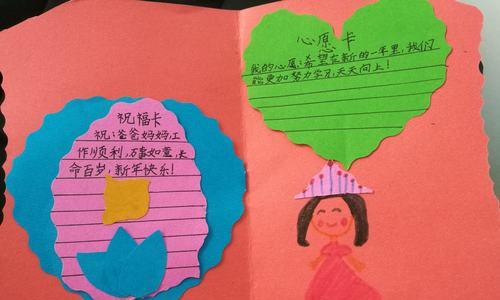 祝福卡
祝：爸爸妈妈，工
作顺利，万事如意，长
命百岁，新年快乐！
心愿卡
我的心愿：希望在新的一年里，我们
能更加努力学习，天天向上！